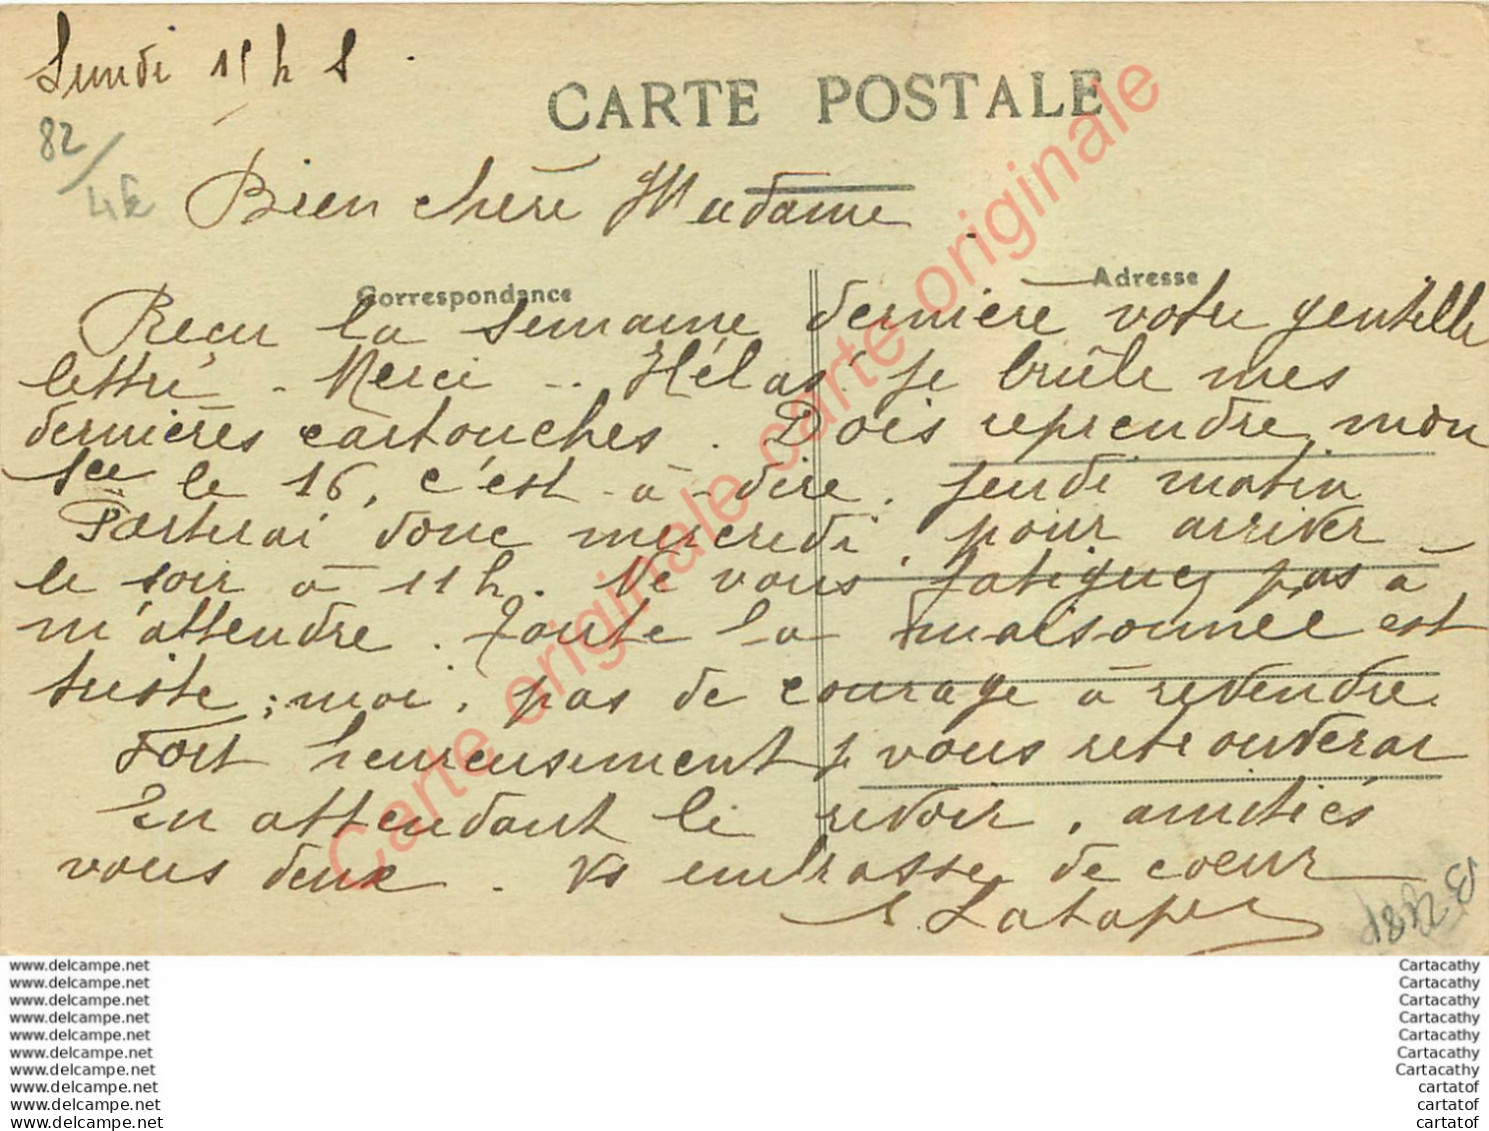 Lundi 15 h S
CARTE POSTALE
82/
4€
Bien chère Madame
Correspondance
Adresse
Reçu la semaine dernière votre gentille
lettre. Merci .. Hélas! je brûle mes
dernières cartouches. Dois reprendre mon
Sce le 16, c'est-à-dire, jeudi matin
Partirai donc mercredi, pour arriver
le soir à 11 h. Ne vous fatiguez pas à
m'attendre. Toute la maisonnée est
triste ; moi, pas de courage à revendre.
Fort heureusement je vous retrouverai
En attendant le revoir, amitiés
vous deux. Vs embrasse de coeur
Carte originale carte originale
www.delcampe.net Cartacathy
www.delcampe.net Cartacathy
www.delcampe.net Cartacathy
www.delcampe.net Cartacathy
www.delcampe.net Cartacathy
www.delcampe.net Cartacathy
www.delcampe.net Cartacathy
www.delcampe.net cartatof
www.delcampe.net cartatof
www.delcampe.net cartatof